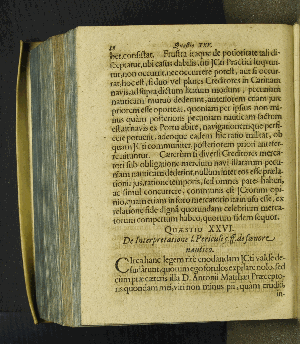 Quæstio XXV.
ber, consistat. Frustra itaque de potioritate tali di-
sceptatur, ubi casus dabilis, uti JCti Practici loquuntur
tur, non occurrit, nec occurrere potest, aut si occur-
rat, hoc est, si duo vel plures Creditores in Carinam
navis, ad supra dictum litatum modum, pecuniam
nauticam mutuo dederint, anteriorem etiam jure
priorem esse oportet, quoniam per ipsius non mi-
nus quàm posterioris pecuniam nauticam factum
est, ut navis ex Portu abire, navigationemque perfi-
cere potuerit, adeoque eadem hic ratio militat, ob
quam JCti communiter posteriorem priori
Cæterùm si diversi Creditores merca-
tori sub obligatione mercium navi illatarum pecu-
niam nauticam dederint, nullum inter eos esse præla-
tionis jus, ratione temporis, sed omnes pares haberi,
ac simul concurrere, communis est JCtorum opi-
nio, quam etiam in foro mercatorio usu esse, ex
relatione fide digna quorundam celebrium merca-
torum compertum habeo, quorum fidem sequor.
QUÆSTIO XXVI.
De Interpretatione l. Periculi ff. de fœnore
nautico.
Clicet hanc legem rite enodandam JCti valde de-
sudârint, quorum ego explare nolo, sed
cum præ cæteris illa D. Antonii Matthæi Præcepto-
ris quondam mei, viri non minus pii, quàm eruditi
in-